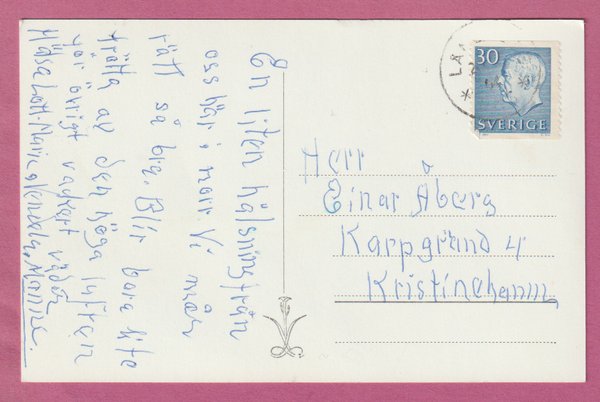 En liten hälsning från
oss här i norr Vi mår
rätt så bra. Blir bara lite
trötta av den höga luften
för övrigt vackert väder
Hälsa Lott-Marie
30
SVERIGE
LÅ
Herr
Einar Åberg
Karpgränd 4
Kristinehamn